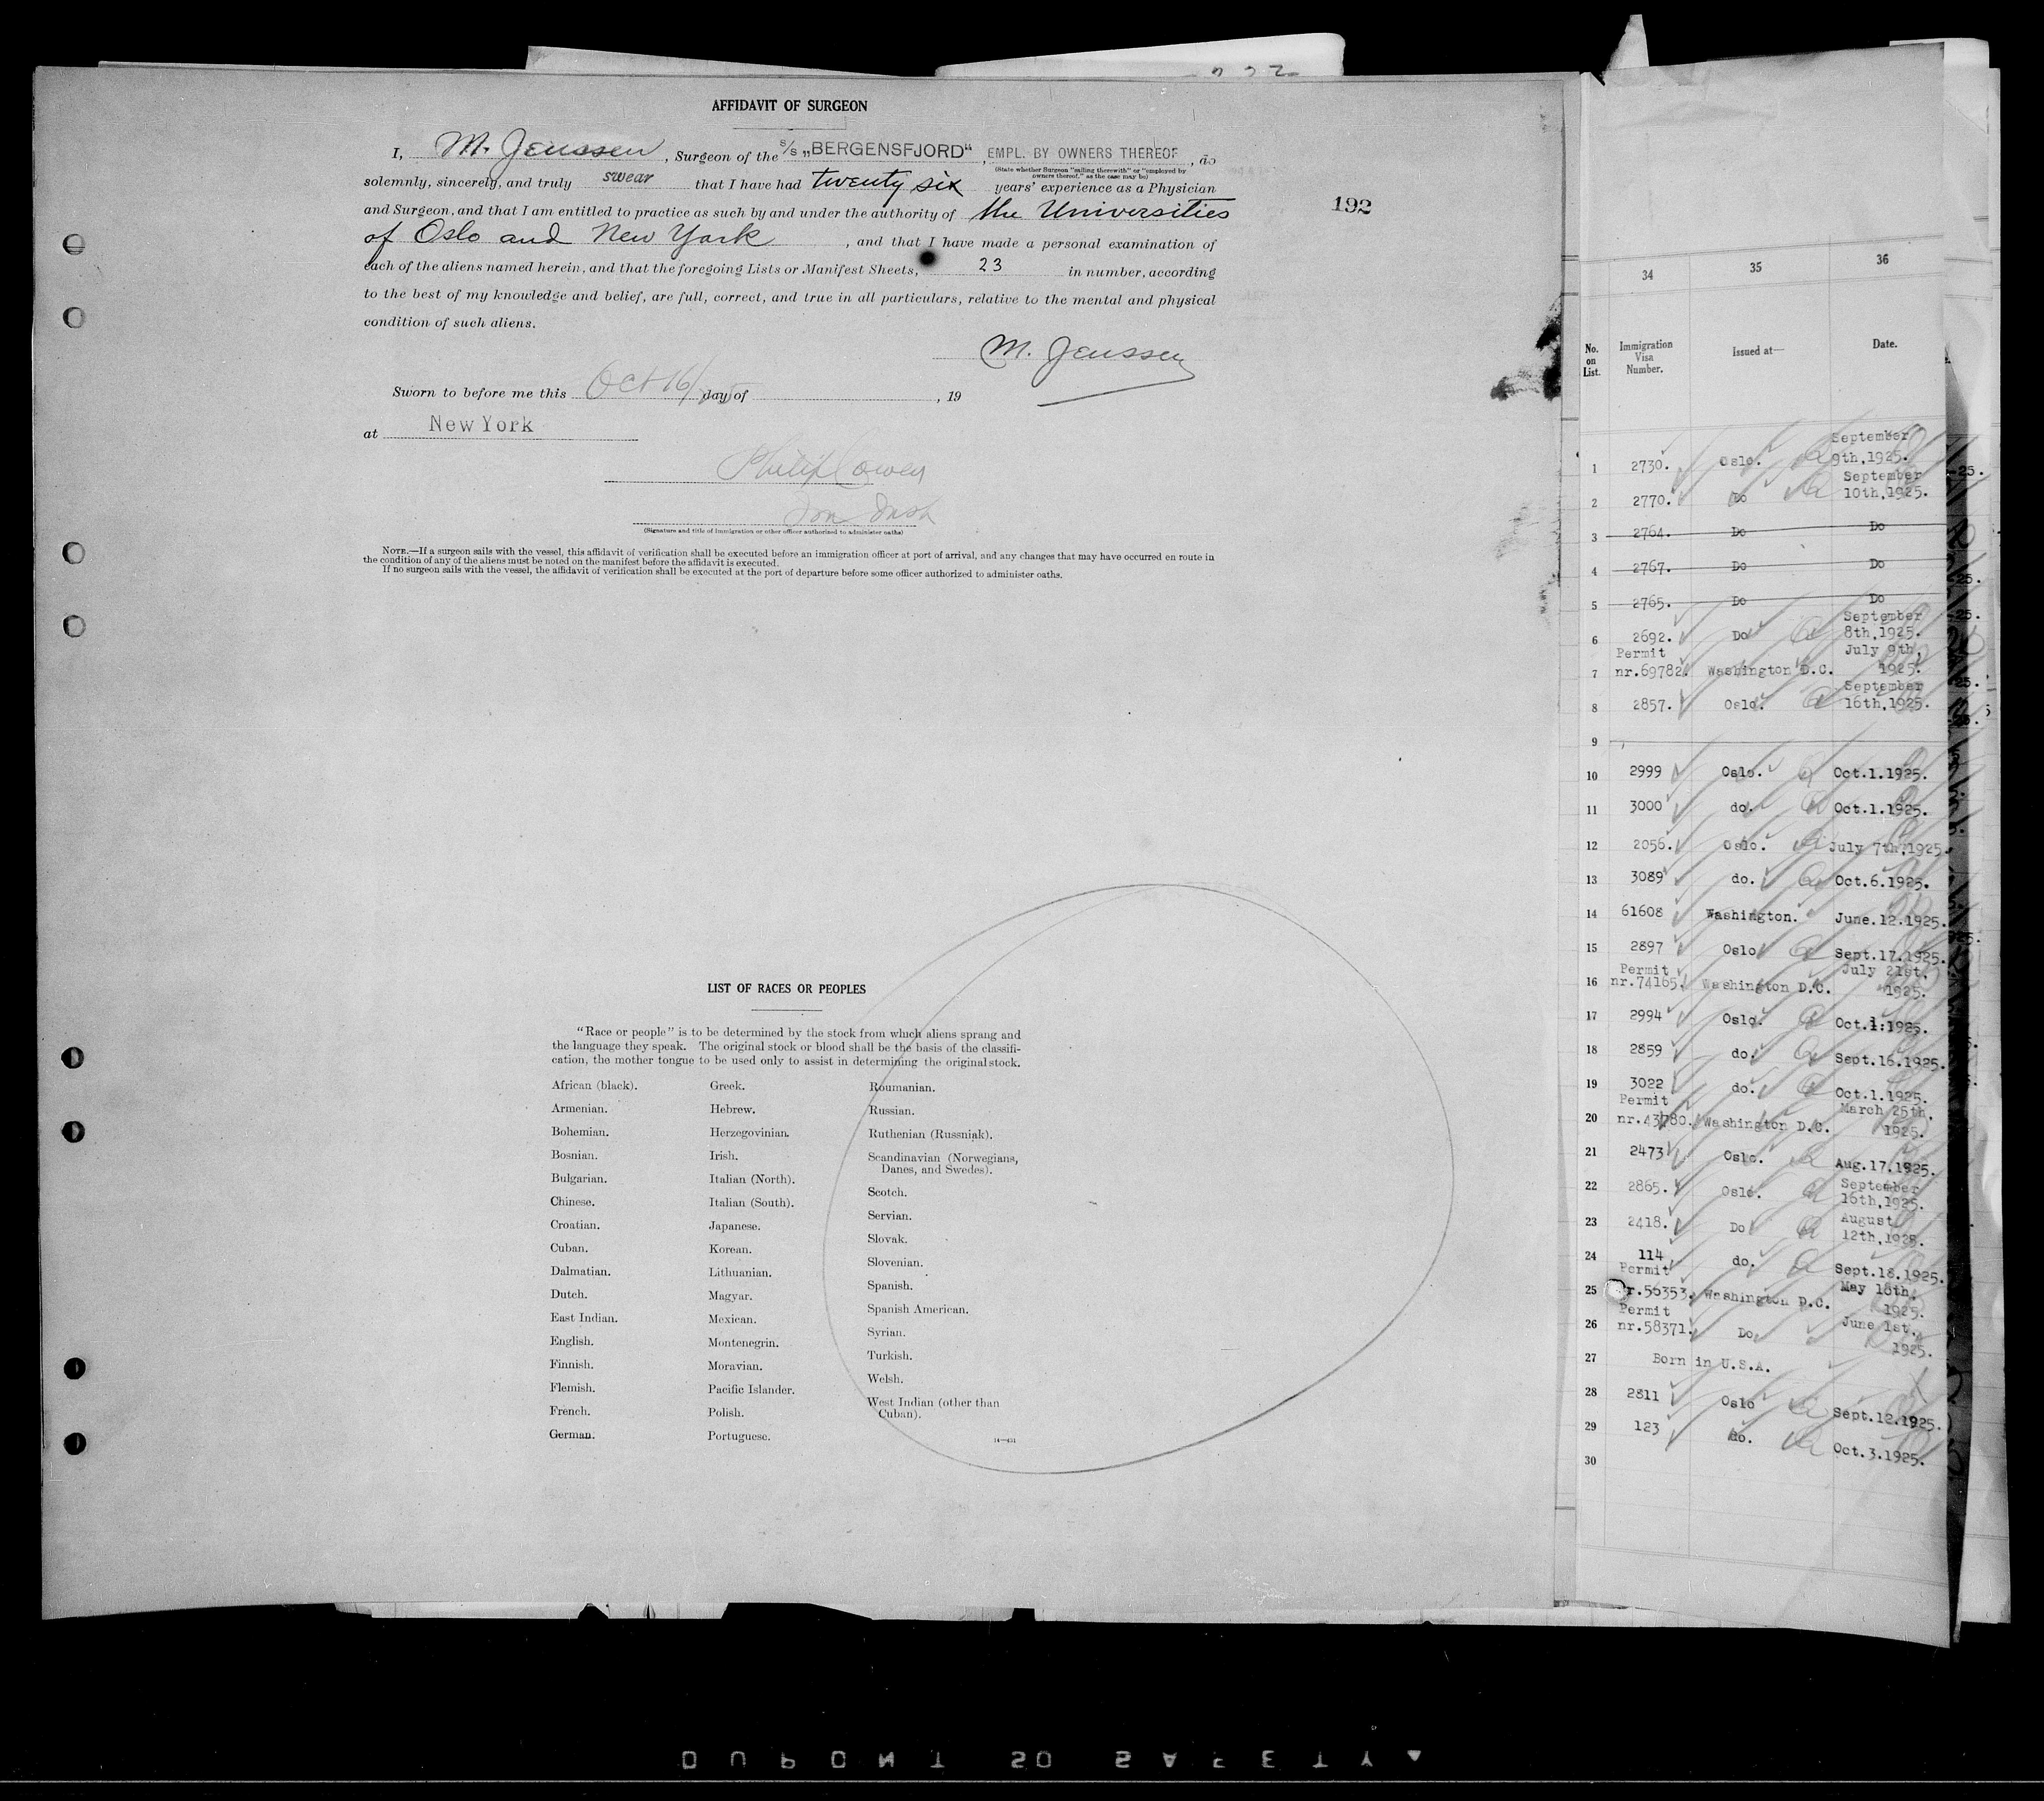 AFFIDAVIT OF SURGEON
I, M. Jenssen, Surgeon of the S/S „BERGENSFJORD“, EMPL. BY OWNERS THEREOF, do
(State whether Surgeon "sailing therewith" or "employed by
owners thereof," as the case may be)
solemnly, sincerely, and truly swear that I have had twenty six years' experience as a Physician
and Surgeon, and that I am entitled to practice as such by and under the authority of the Universities
of Oslo and New York, and that I have made a personal examination of
each of the aliens named herein, and that the foregoing Lists or Manifest Sheets, 23 in number, according
to the best of my knowledge and belief, are full, correct, and true in all particulars, relative to the mental and physical
condition of such aliens.
192
M. Jenssen
Sworn to before me this Oct 16/ day of , 19
at New York
Philip Cowen
(Signature and title of immigration or other officer authorized to administer oaths)
NOTE.—If a surgeon sails with the vessel, this affidavit of verification shall be executed before an immigration officer at port of arrival, and any changes that may have occurred en route in
the condition of any of the aliens must be noted on the manifest before the affidavit is executed.
If no surgeon sails with the vessel, the affidavit of verification shall be executed at the port of departure before some officer authorized to administer oaths.
LIST OF RACES OR PEOPLES
"Race or people" is to be determined by the stock from which aliens sprang and
the language they speak. The original stock or blood shall be the basis of the classifi-
cation, the mother tongue to be used only to assist in determining the original stock.
African (black).
Armenian.
Bohemian.
Bosnian.
Bulgarian.
Chinese.
Croatian.
Cuban.
Dalmatian.
Dutch.
East Indian.
English.
Finnish.
Flemish.
French.
German.
Greek.
Hebrew.
Herzegovinian.
Irish.
Italian (North).
Italian (South).
Japanese.
Korean.
Lithuanian.
Magyar.
Mexican.
Montenegrin.
Moravian.
Pacific Islander.
Polish.
Portuguese.
Roumanian.
Russian.
Ruthenian (Russniak).
Scandinavian (Norwegians,
Danes, and Swedes).
Scotch.
Servian.
Slovak.
Slovenian.
Spanish.
Spanish American.
Syrian.
Turkish.
Welsh.
West Indian (other than
Cuban).
14—481
34 35 36
No. on List. Immigration Visa Number. Issued at— Date.
1 2730. Oslo. September 9th,1925.
2 2770. Do September 10th,1925.
3 2764. Do Do
4 2767. Do Do
5 2765. Do Do
6 2692. Do September 8th,1925.
7 Permit nr.69782. Washington D.C. July 9th, 1925.
8 2857. Oslo. September 16th,1925.
9
10 2999 Oslo. Oct.1.1925.
11 3000 do. Oct.1.1925.
12 2056. Oslo. July 7th,1925.
13 3089 do. Oct.6.1925.
14 61608 Washington. June.12.1925.
15 2897 Oslo Sept.17.1925.
16 Permit nr.74165. Washington D.C. July 21st, 1925.
17 2994 Oslo. Oct.1:1925.
18 2859 do. Sept.16.1925.
19 3022 do. Oct.1.1925.
20 Permit nr.43780. Washington D.C. March 25th, 1925.
21 2473 Oslo. Aug.17.1925.
22 2865. Oslo. September 16th,1925.
23 2418. Do August 12th,1925.
24 114 do. Sept.18.1925.
25 Permit nr.56353. Washington D.C. May 18th, 1925.
26 Permit nr.58371. Do June 1st, 1925.
27 Born in U.S.A.
28 2811 Oslo Sept.12.1925.
29 123 do. Oct.3.1925.
30
DUPONT SO SAFETY